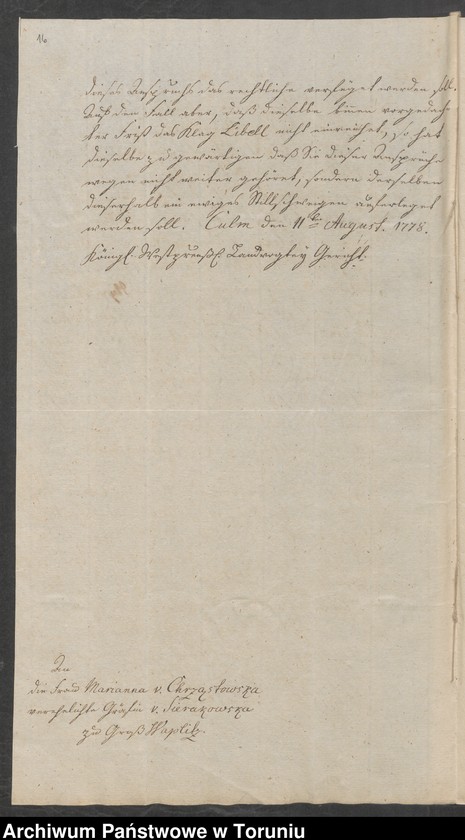 16
dieses Anspruchs das rechtliche verfüget werden soll.
Auf den Fall aber, daß dieselbe binnen vorgedach
ter Frist das Klag Libell nicht einreichet, so hat
dieselbe zu gewärtigen daß Sie dieser Ansprüche
wegen nicht weiter gehöret, sondern derselben
dieserhalb ein ewiges Stillschweigen auferleget
werden soll. Culm den 11ten August. 1778.
Königl. Westpreuß. Landvogtey Gericht.
An
die Frau Marianna v. Chrząstowska
verehelichte Gräfin v. Sierakowska
zu Groß Waplitz.
Archiwum Państwowe w Toruniu